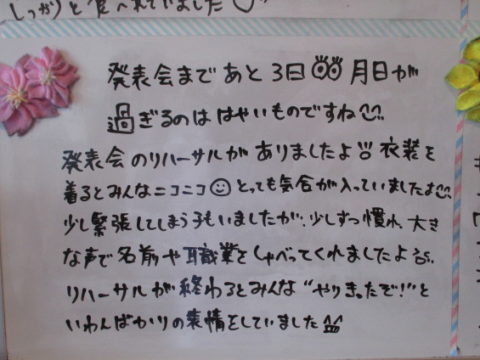 しっかりと食べれていました
発表会まであと3日 月日が
過ぎるのははやいものですね
発表会のリハーサルがありましたよ 衣装を
着るとみんなニコニコ とっても気合が入っていましたよ
少し緊張してしまう子もいましたが、少しずつ慣れ、大き
な声で名前や職業をしゃべってくれましたよ
リハーサルが終わるとみんな"やりきったぞ!"と
いわんばかりの表情をしていました